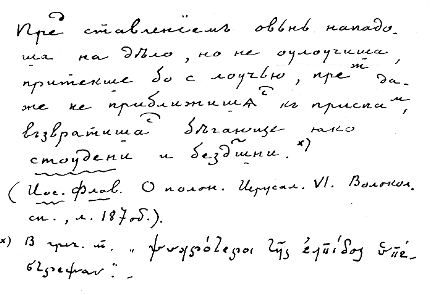 Прѣд ставленїемъ овьнъ нападо-
ша на дѣло, но не оулоучиша,
притекше бо с лоучью, преж да-
же не приближишас къ приспам,
възвратишас бѣгающе яко
стоудени и бездшни. х)
(Иос. Флав. О полон. Иерусал. VI. Волокол.
сп., л. 187об.).
х) В греч. т. „ψυχρότεροι τῆς ἐλπίδος ὑπέ-
στρεψαν“.